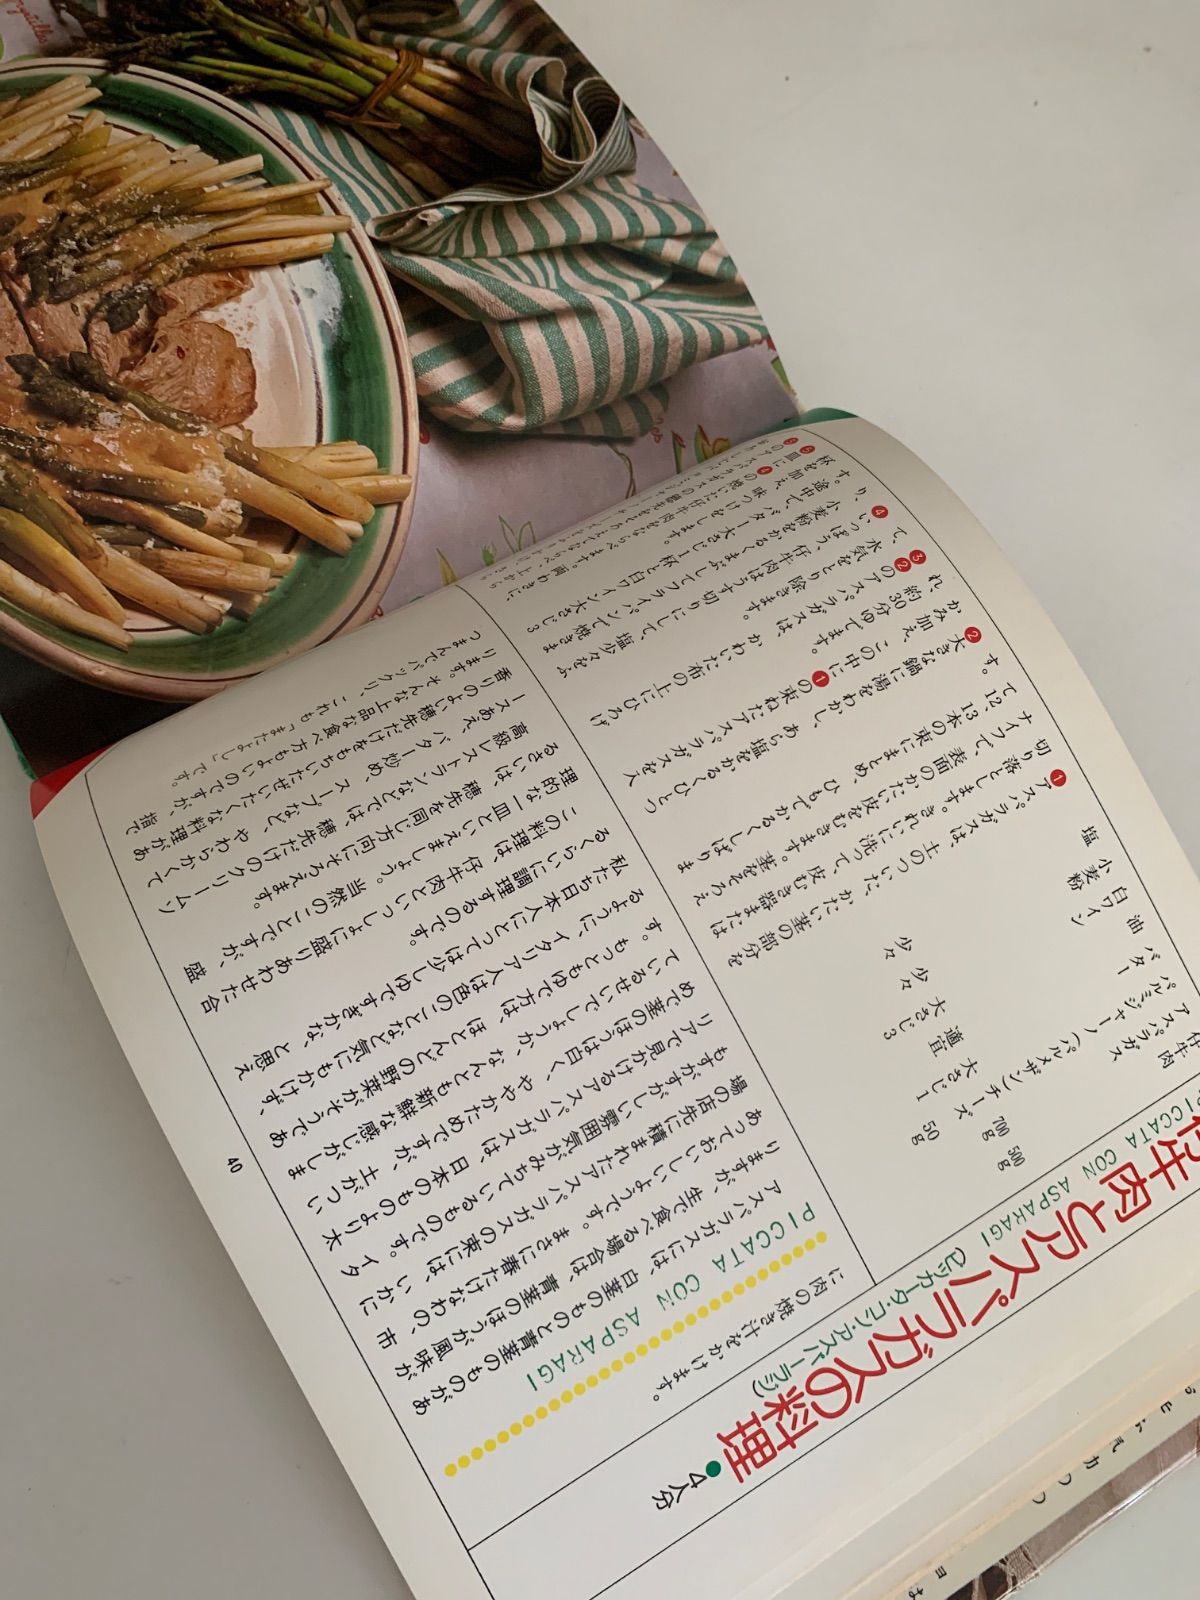 仔牛肉とアスパラガスの料理●4人分
(ピッカータ・コン・アスパーラジ)
PICCATA CON ASPARAGI
仔牛肉 500g
アスパラガス 700g
パルミジャーノ(パルメザンチーズ) 50g
バター 大さじ1
油 適宜
白ワイン 大さじ3
小麦粉 少々
塩 少々
❶アスパラガスは、土のついた、かたい茎の部分を
切り落とします。きれいに洗って、皮むき器または
ナイフで、表面のかたい皮をむきます。茎をそろえ
て12、13本の束にまとめ、ひもでかるくしばりま
す。
❷大きな鍋に湯をわかし、あら塩をかるくひとつ
かみ加え、この中に❶の束ねたアスパラガスを入
れ、約30分ゆでます。
❸❷のアスパラガスは、かわいた布の上にひろげ
て、水気をとり除きます。
❹いっぽう、仔牛肉はうす切りにして、塩少々をふ
り、小麦粉をかるくまぶしてフライパンで焼きま
す。途中で、バター大さじ1杯と白ワイン大さじ3
杯を加え、味つけをします。
❺皿に❹の焼いた仔牛肉をならべます。両わきに、
❸のアスパラガスの
に肉の焼き汁をかけます。
PICCATA CON ASPARAGI
アスパラガスには、白茎のものと青茎のものがあ
りますが、生で食べる場合は、青茎のほうが風味が
あっておいしいようです。まさに春たけなわの、市
場の店先に積まれたアスパラガスの束には、いかに
もすがすがしい雰囲気がみちているものです。イタ
リアで見かけるアスパラガスは、日本のものより太
めで茎のほうは白く、ややかためですが、土がつい
ているせいでしょうか、なんとも新鮮な感じがしま
す。もっともゆで方は、ほとんどの野菜がそうであ
るように、イタリア人は色のことなど気にもかけず、
私たち日本人にとっては少しゆですぎかな、と思え
るくらいに調理するのです。
この料理は、仔牛肉といっしょに盛りあわせた合
理的な一皿といえましょう。当然のことですが、盛
るさいは、穂先を同じ方向にそろえます。
高級レストランなどでは、穂先だけのクリームソ
ースあえ、バター炒め、スープなど、やわらかくて
香りのよい穂先だけをもちいたぜいたくな料理があ
ります。そんな上品な食べ方もよいのですが、指で
つまんでパックリ、これも“またよし”です。
40